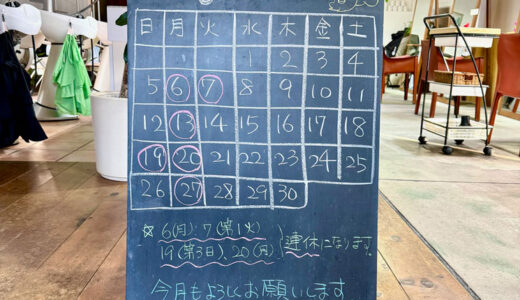 日 月 火 水 木 金 土
1 2 3 4
5 6 7 8 9 10 11
12 13 14 15 16 17 18
19 20 21 22 23 24 25
26 27 28 29 30
☆ 6(月)・7(第1火)
19(第3日)、20(月) 連休になります。
今月もよろしくお願いします